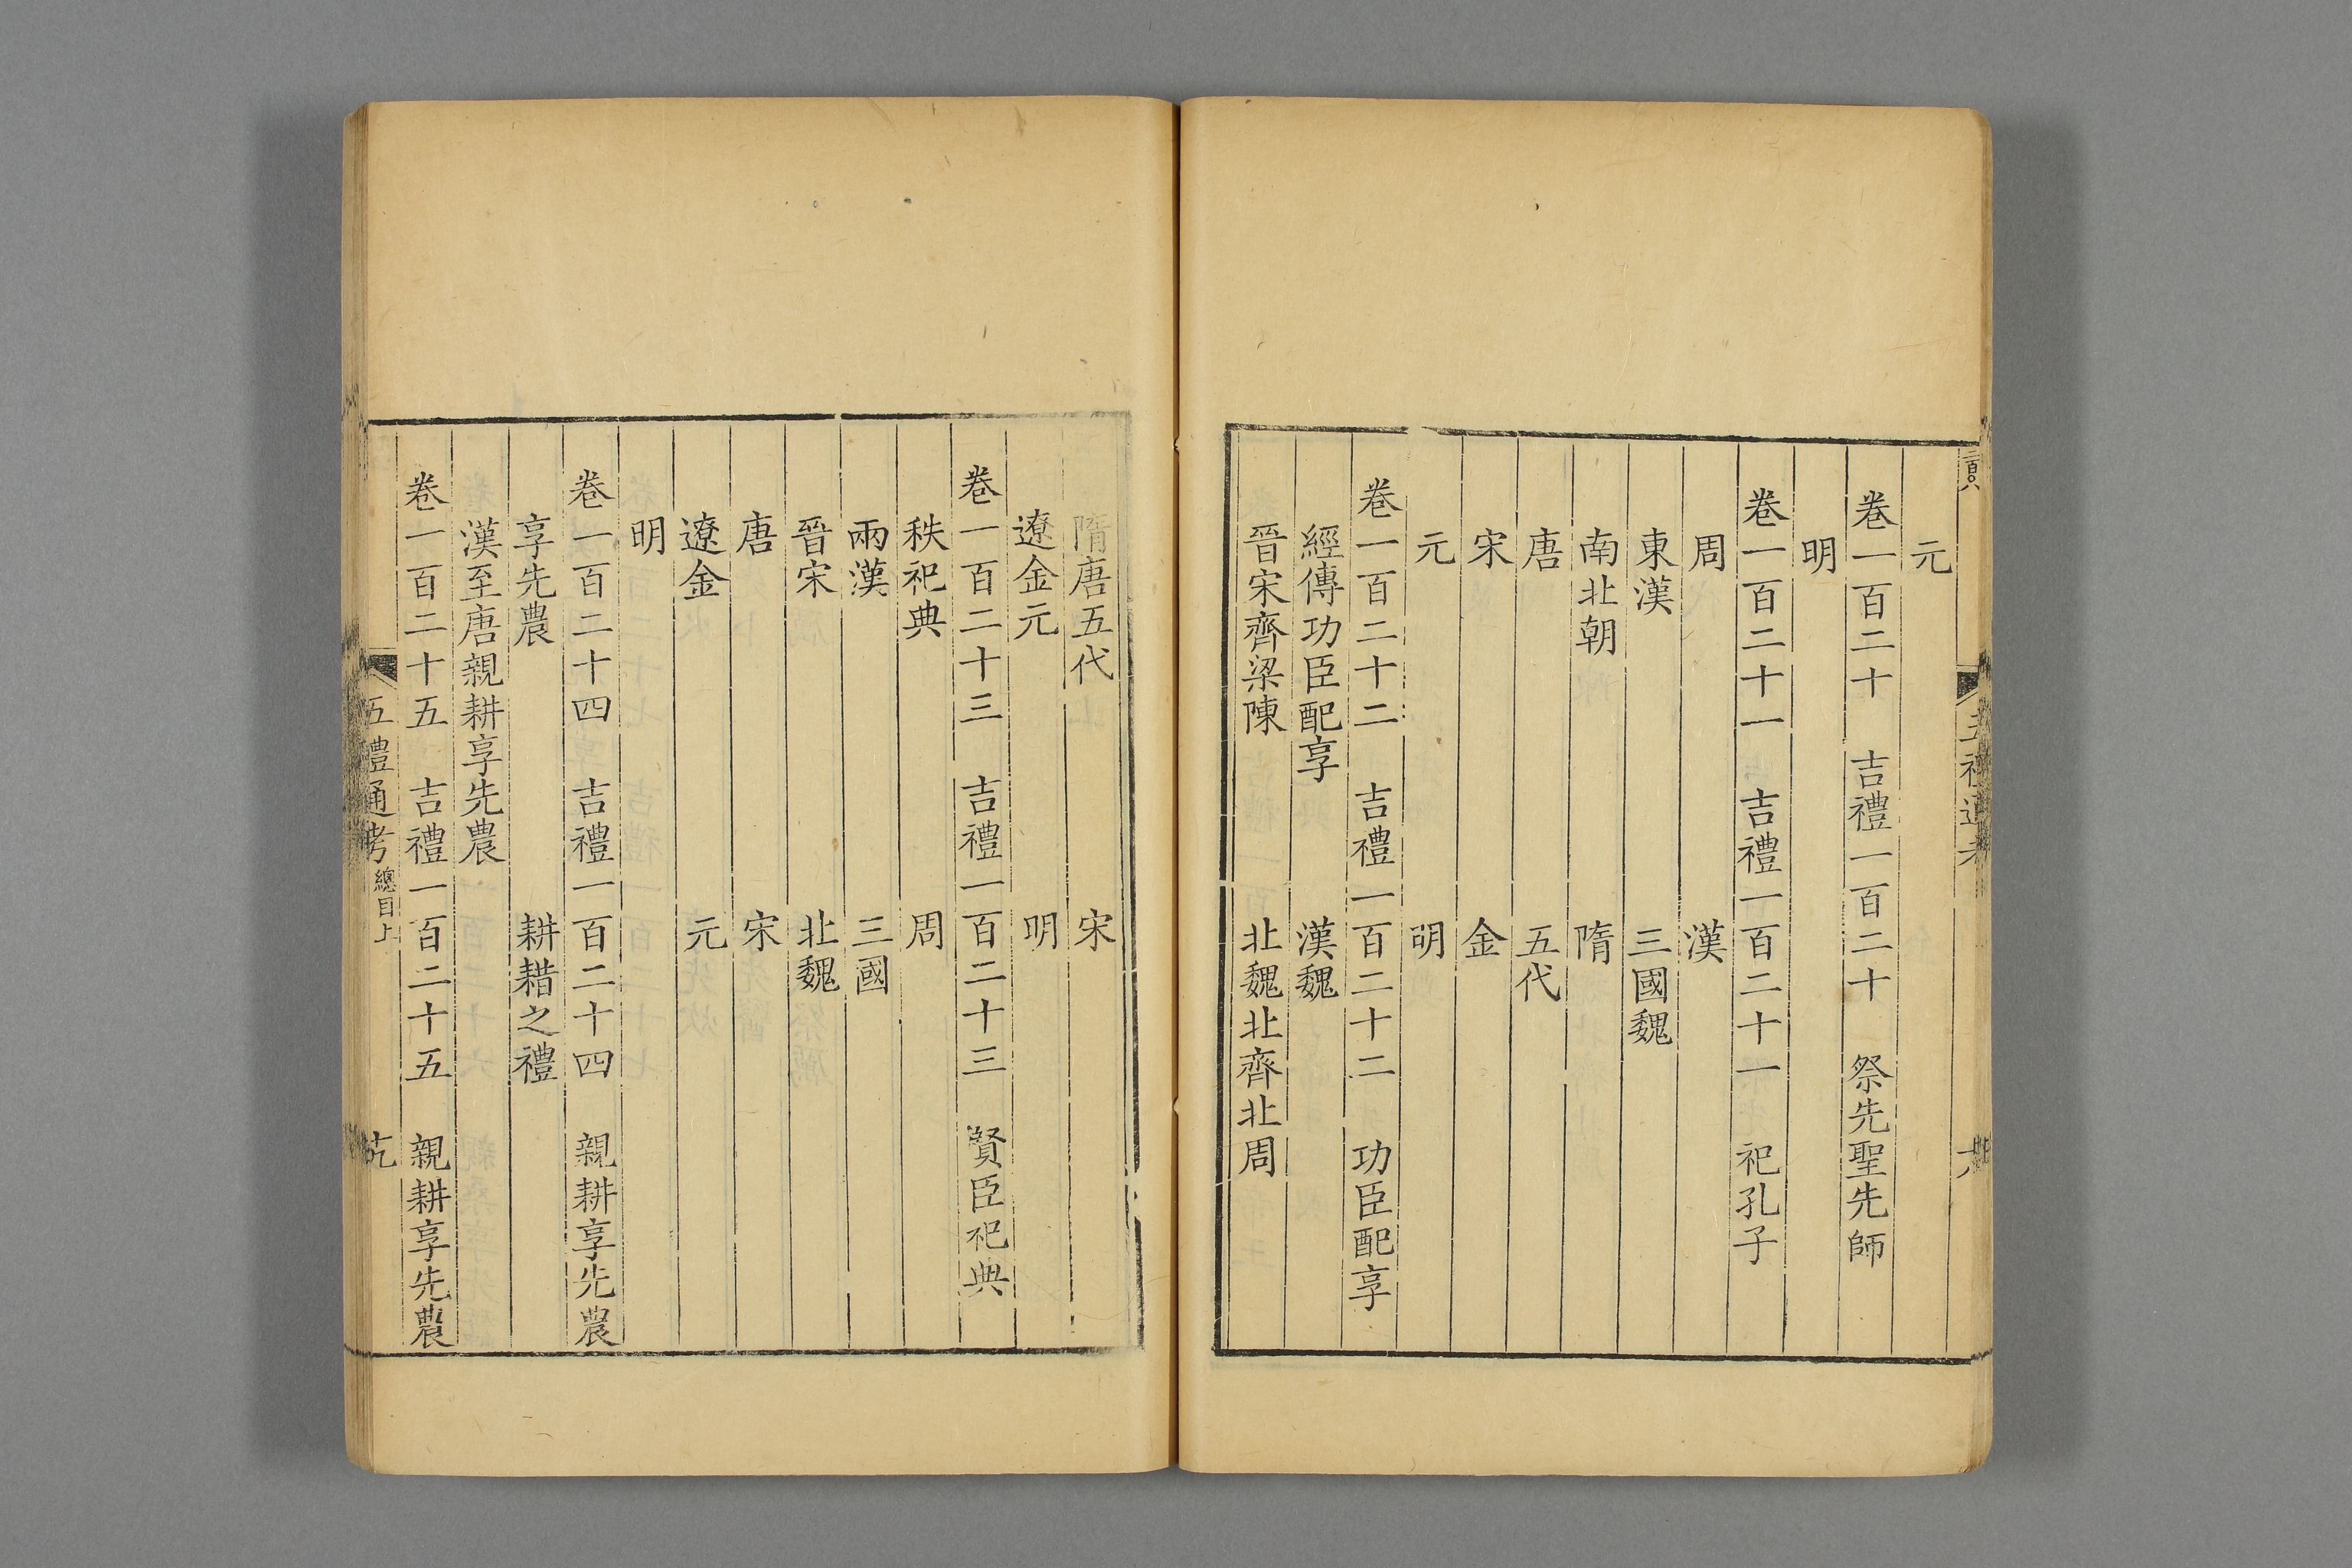 元
卷一百二十 吉禮一百二十 祭先聖先師
明
卷一百二十一 吉禮一百二十一 祀孔子
周 漢
東漢 三國魏
南北朝 隋
唐 五代
宋 金
元 明
卷一百二十二 吉禮一百二十二 功臣配享
經傳功臣配享 漢魏
晉宋齊梁陳 北魏北齊北周
隋唐五代 宋
遼金元 明
卷一百二十三 吉禮一百二十三 賢臣祀典
秩祀典 周
兩漢 三國
晉宋 北魏
唐 宋
遼金 元
明
卷一百二十四 吉禮一百二十四 親耕享先農
享先農 耕耤之禮
漢至唐親耕享先農
卷一百二十五 吉禮一百二十五 親耕享先農
五禮通考 總目上